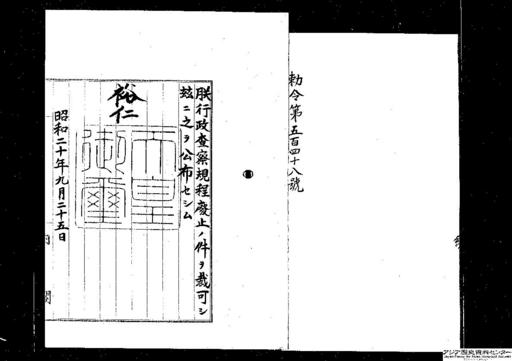 勅令第五百四十八號
朕行政查察規程廢止ノ件ヲ裁可シ
玆ニ之ヲ公布セシム
裕仁
天皇
御璽
昭和二十年九月二十五日
内閣
アジア歴史資料センター